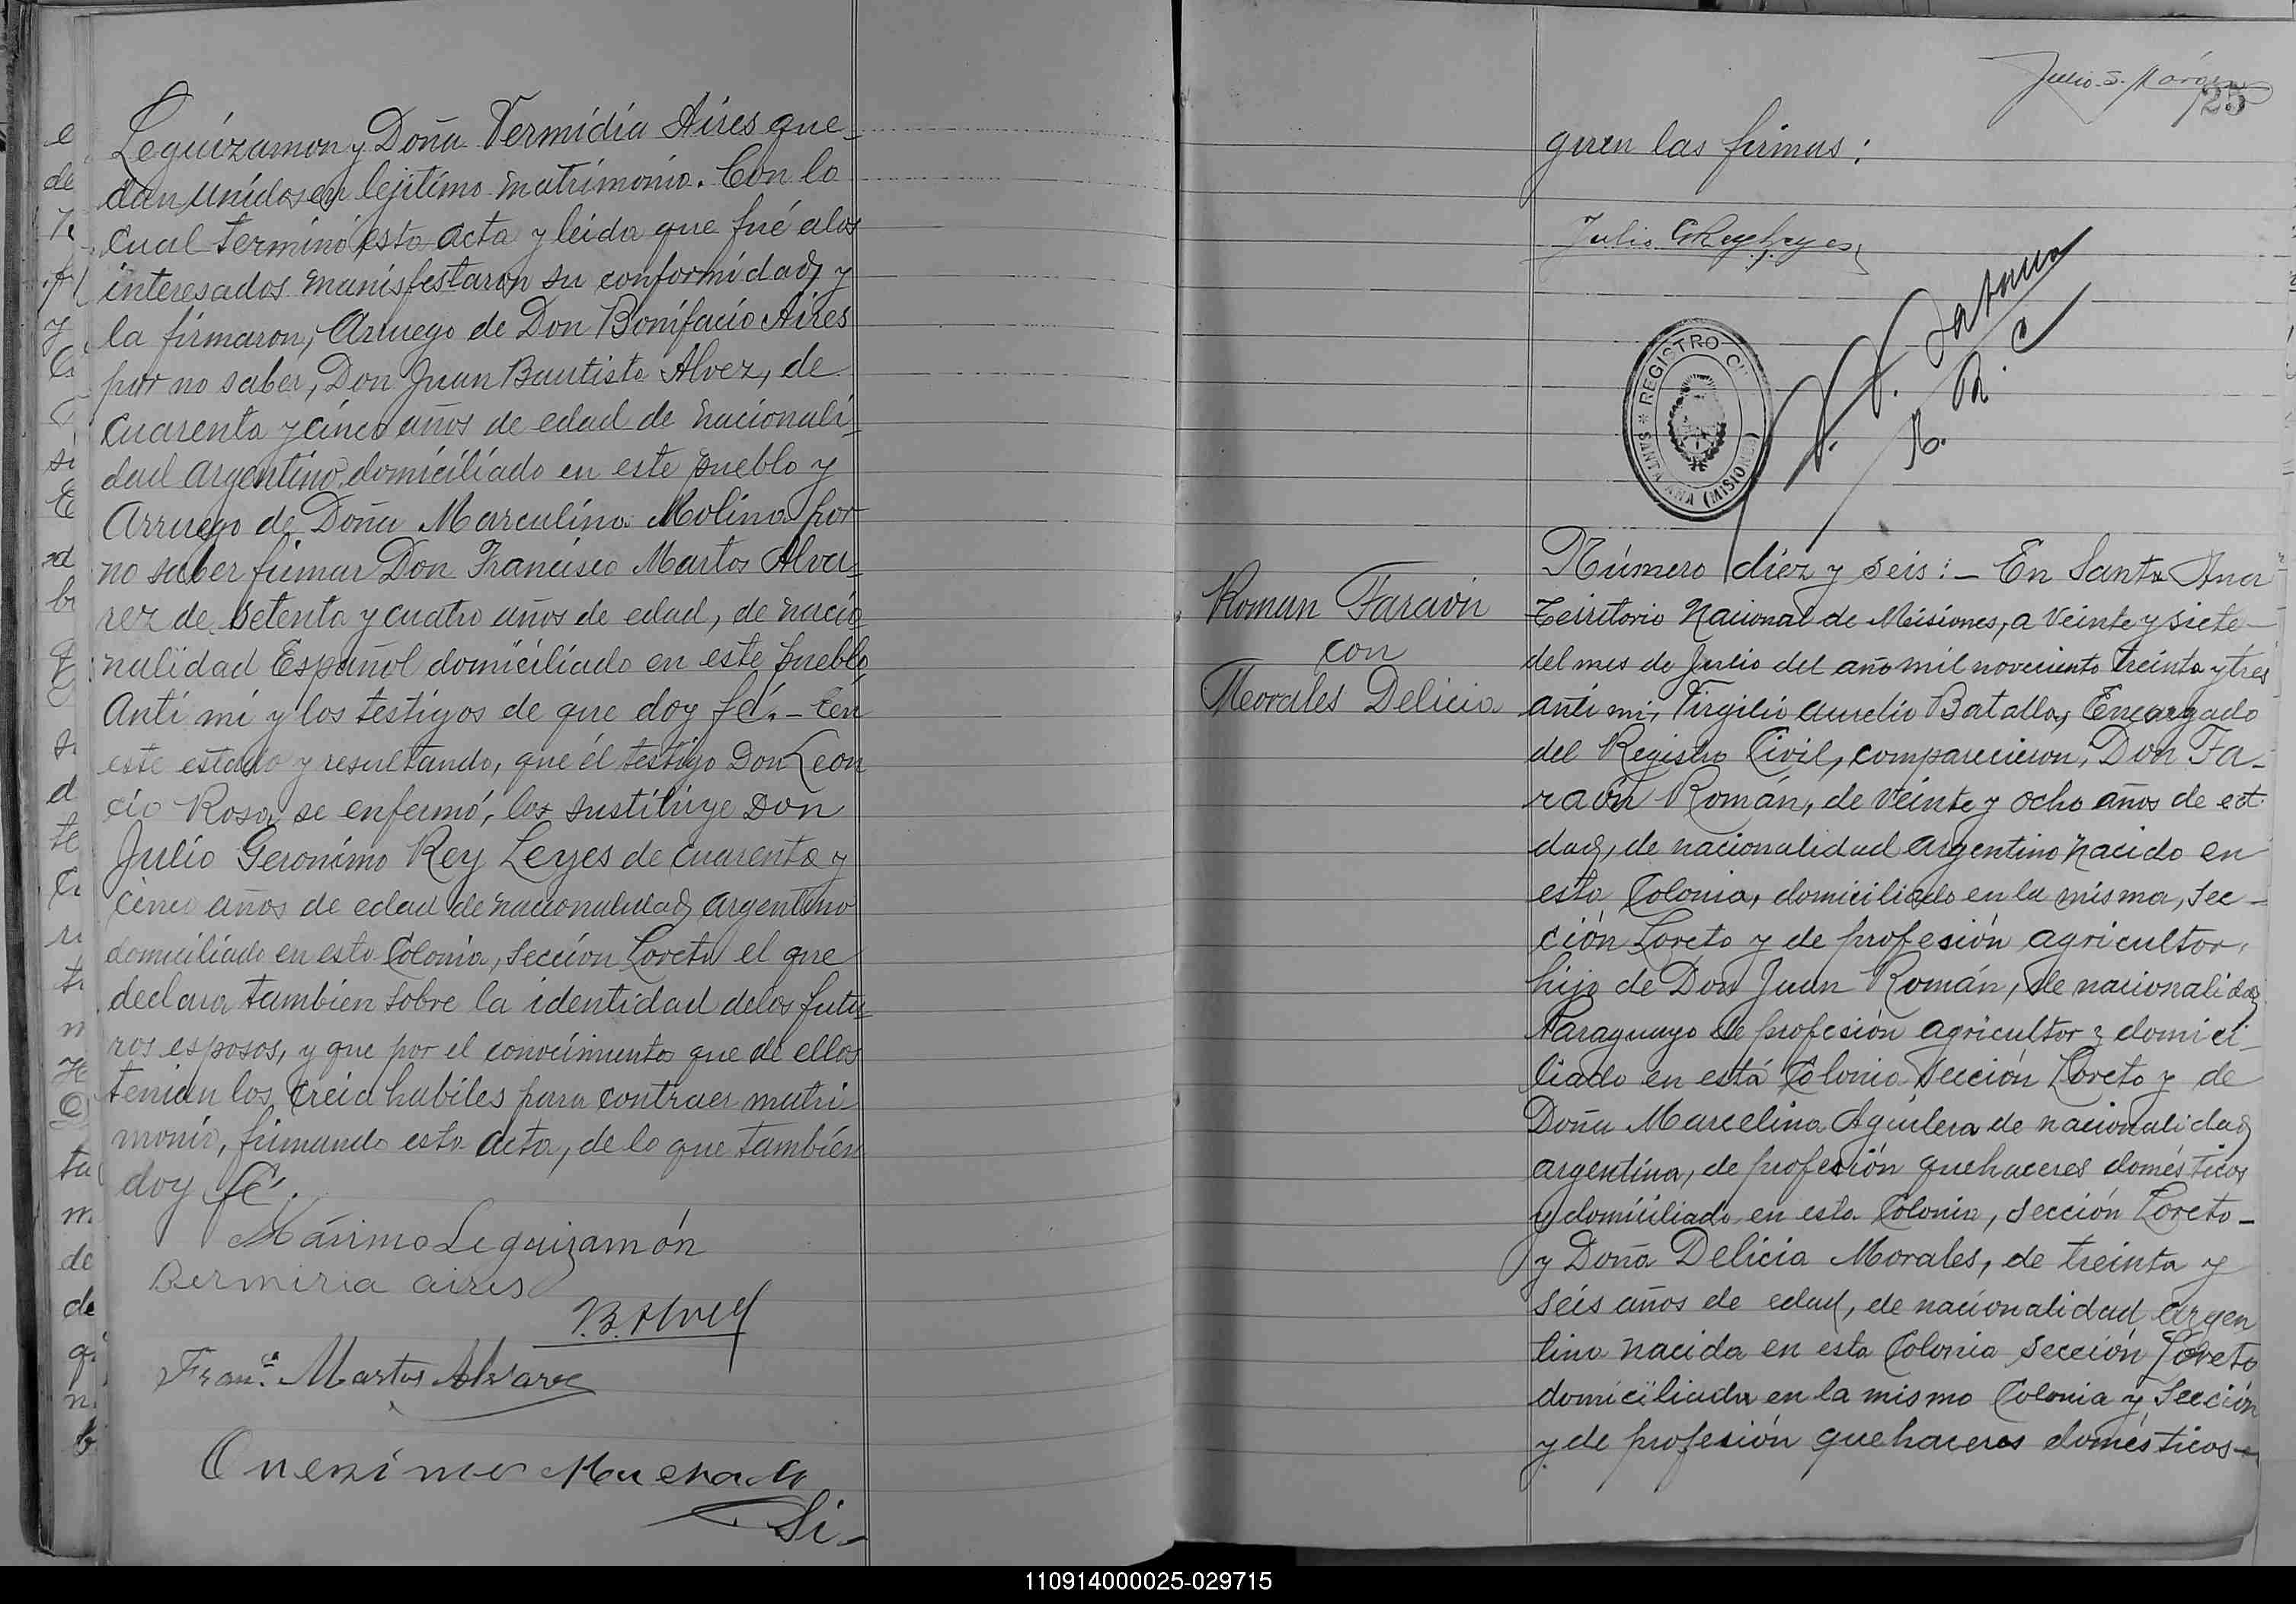 Leguizamon y Doña Vermidia Aires que-
dan unidos en lejitimo matrimonio. Con lo
cual terminó esta acta y leida que fué a los
interesados manisfestaron su conformidad y
la firmaron, Arruego de Don Bonifacio Aires
por no saber, Don Juan Bautista Alvez, de
cuarenta y cinco años de edad de nacionali-
dad argentino domiciliado en este pueblo y
Arruego de Doña Marculina Molina por
no saber firmar Don Francisco Martos Alva-
rez de setenta y cuatro años de edad, de nacio
nalidad Español domiciliado en este pueblo,
Anti mi y los testigos de que doy fé. - En
este estado y resultando, que él testigo Don Leon
cio Rosa, se enfermó, los sustituye Don
Julio Geronimo Rey Leyes de cuarenta y
cinco años de edad de nacionalidad argentino
domiciliado en esta Colonia, sección Loreto el que
declara tambien sobre la identidad delos futu-
ros esposos, y que por el conocimiento que de ellos
tenian los creia habiles para contraer matri
monio, firmando esta acta, de lo que también
doy fé.
Máximo Leguizamón
Bermiria aires
J.B. Alvez
Fran.co Martos Alvarez
Onesimo Machado
Si-
25
guen las firmas:
Julio G Rey Leyes
REGISTRO CI
SANTA ANA (MISIONES)
R. C
Roman Faraón
con
Morales Delicia
Número diez y seis: - En Santa Ana
Territorio Nacional de Misiones, a veinte y siete
del mes de Julio del año mil noveciento treinta y tres
anti mi, Virgilio Aurelio Batalla, Encargado
del Registro Civil, comparecieron, Don Fa-
raón Román, de veinte y ocho años de ed
dad, de nacionalidad argentino nacido en
esta Colonia, domiciliado en la misma, sec-
ción Loreto y de profesión agricultor,
hijo de Don Juan Román, de nacionalidad
Paraguayo de profesión agricultor y domici-
liado en está Colonia sección Loreto y de
Doña Marcelina Aguilera de nacionalidad
argentina, de profesión quehaceres domésticos
y domiciliado en esta Colonia, sección Loreto -
y Doña Delicia Morales, de treinta y
seis años de edad, de nacionalidad argen
tina nacida en esta Colonia sección Loreto
domiciliada en la mismo Colonia y Sección
y de profesión quehaceres domésticos -
110914000025-029715